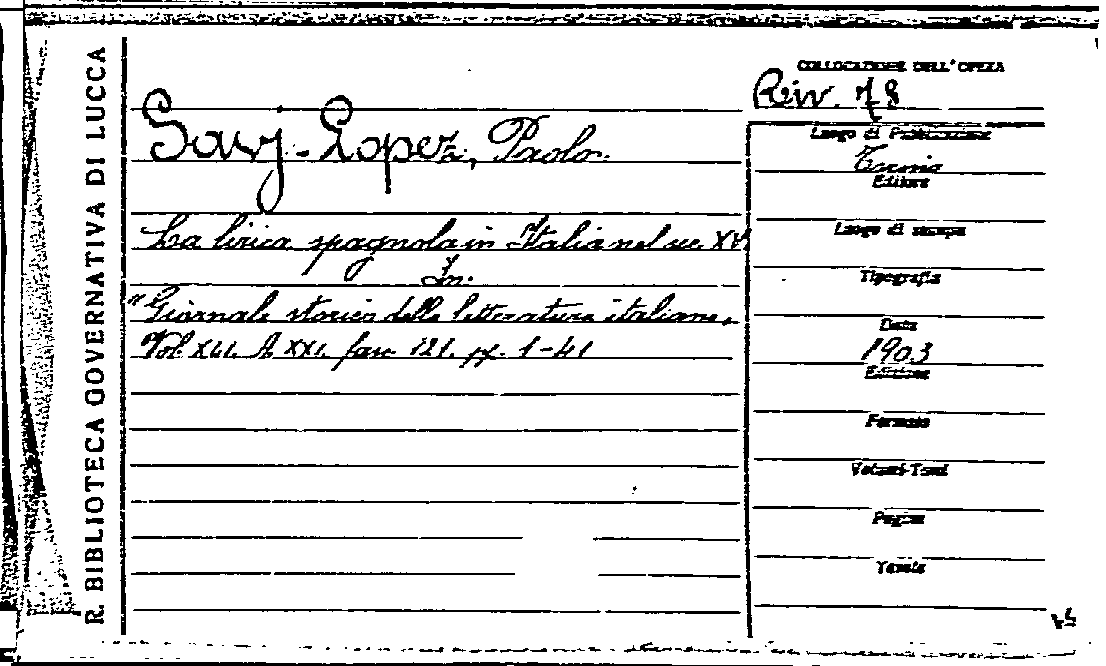 R. BIBLIOTECA GOVERNATIVA DI LUCCA
COLLOCAZIONE DELL'OPERA
Riv. 78
Savj-Lopez, Paolo.
La lirica spagnola in Italia nel sec XV.
In:
"Giornale storico della letteratura italiana.
Vol. XLI. A XXI. fasc 121. pp. 1-41
Luogo di Pubblicazione
Torino
Editore
Luogo di stampa
Tipografia
Data
1903
Edizione
Formato
Volumi-Tomi
Pagine
Tavole